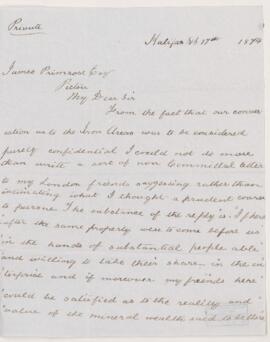 Private
Halifax 17th 1874
James Primrose Esq
Pictou
My Dear Sir
From the fact that our conver
sation as to the Iron Areas was to be considered
purely confidential I could not do more
than write a sort of non Committal letter
to my London friends suggesting rather than
intimating what I thought a prudent course
to pursue. The substance of the reply is: If here
after the same property were to come before us
in the hands of substantial people able
and willing to take their share in the en
terprise and if moreover my friends here
could be satisfied as to the reality and
value of the mineral wealth said to be there